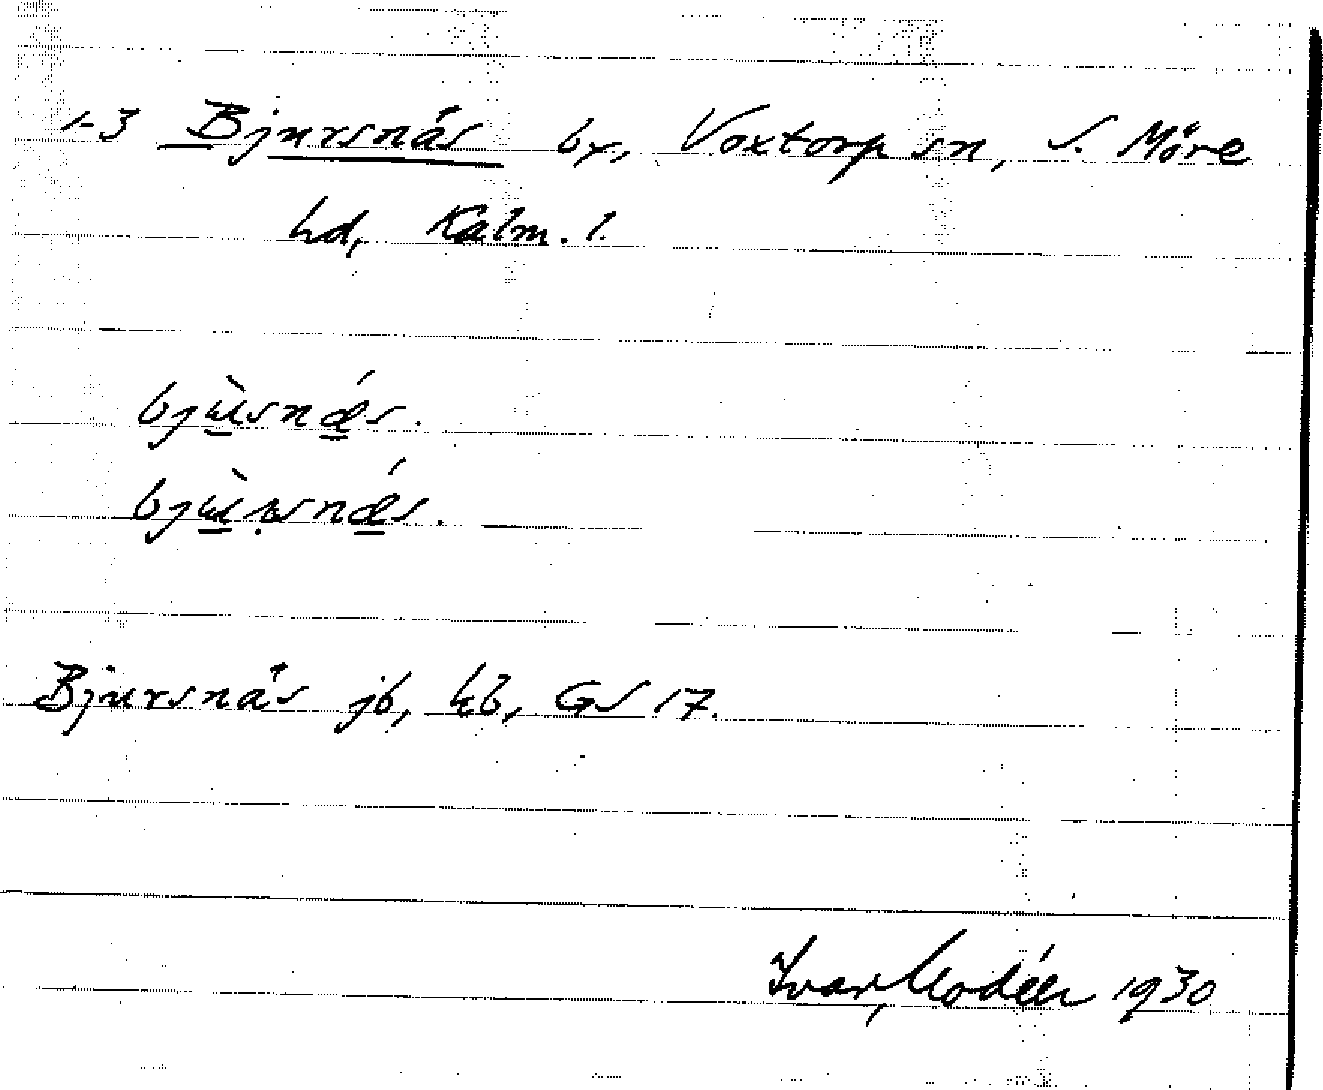 1-3 Bjursnäs by, Voxtorp sn, S. Möre
hd, Kalm. l.
bjùsnǽs.
bjùrsnǽs.
Bjursnäs jb, kb, GS 17.
Ivar Modéer 1930